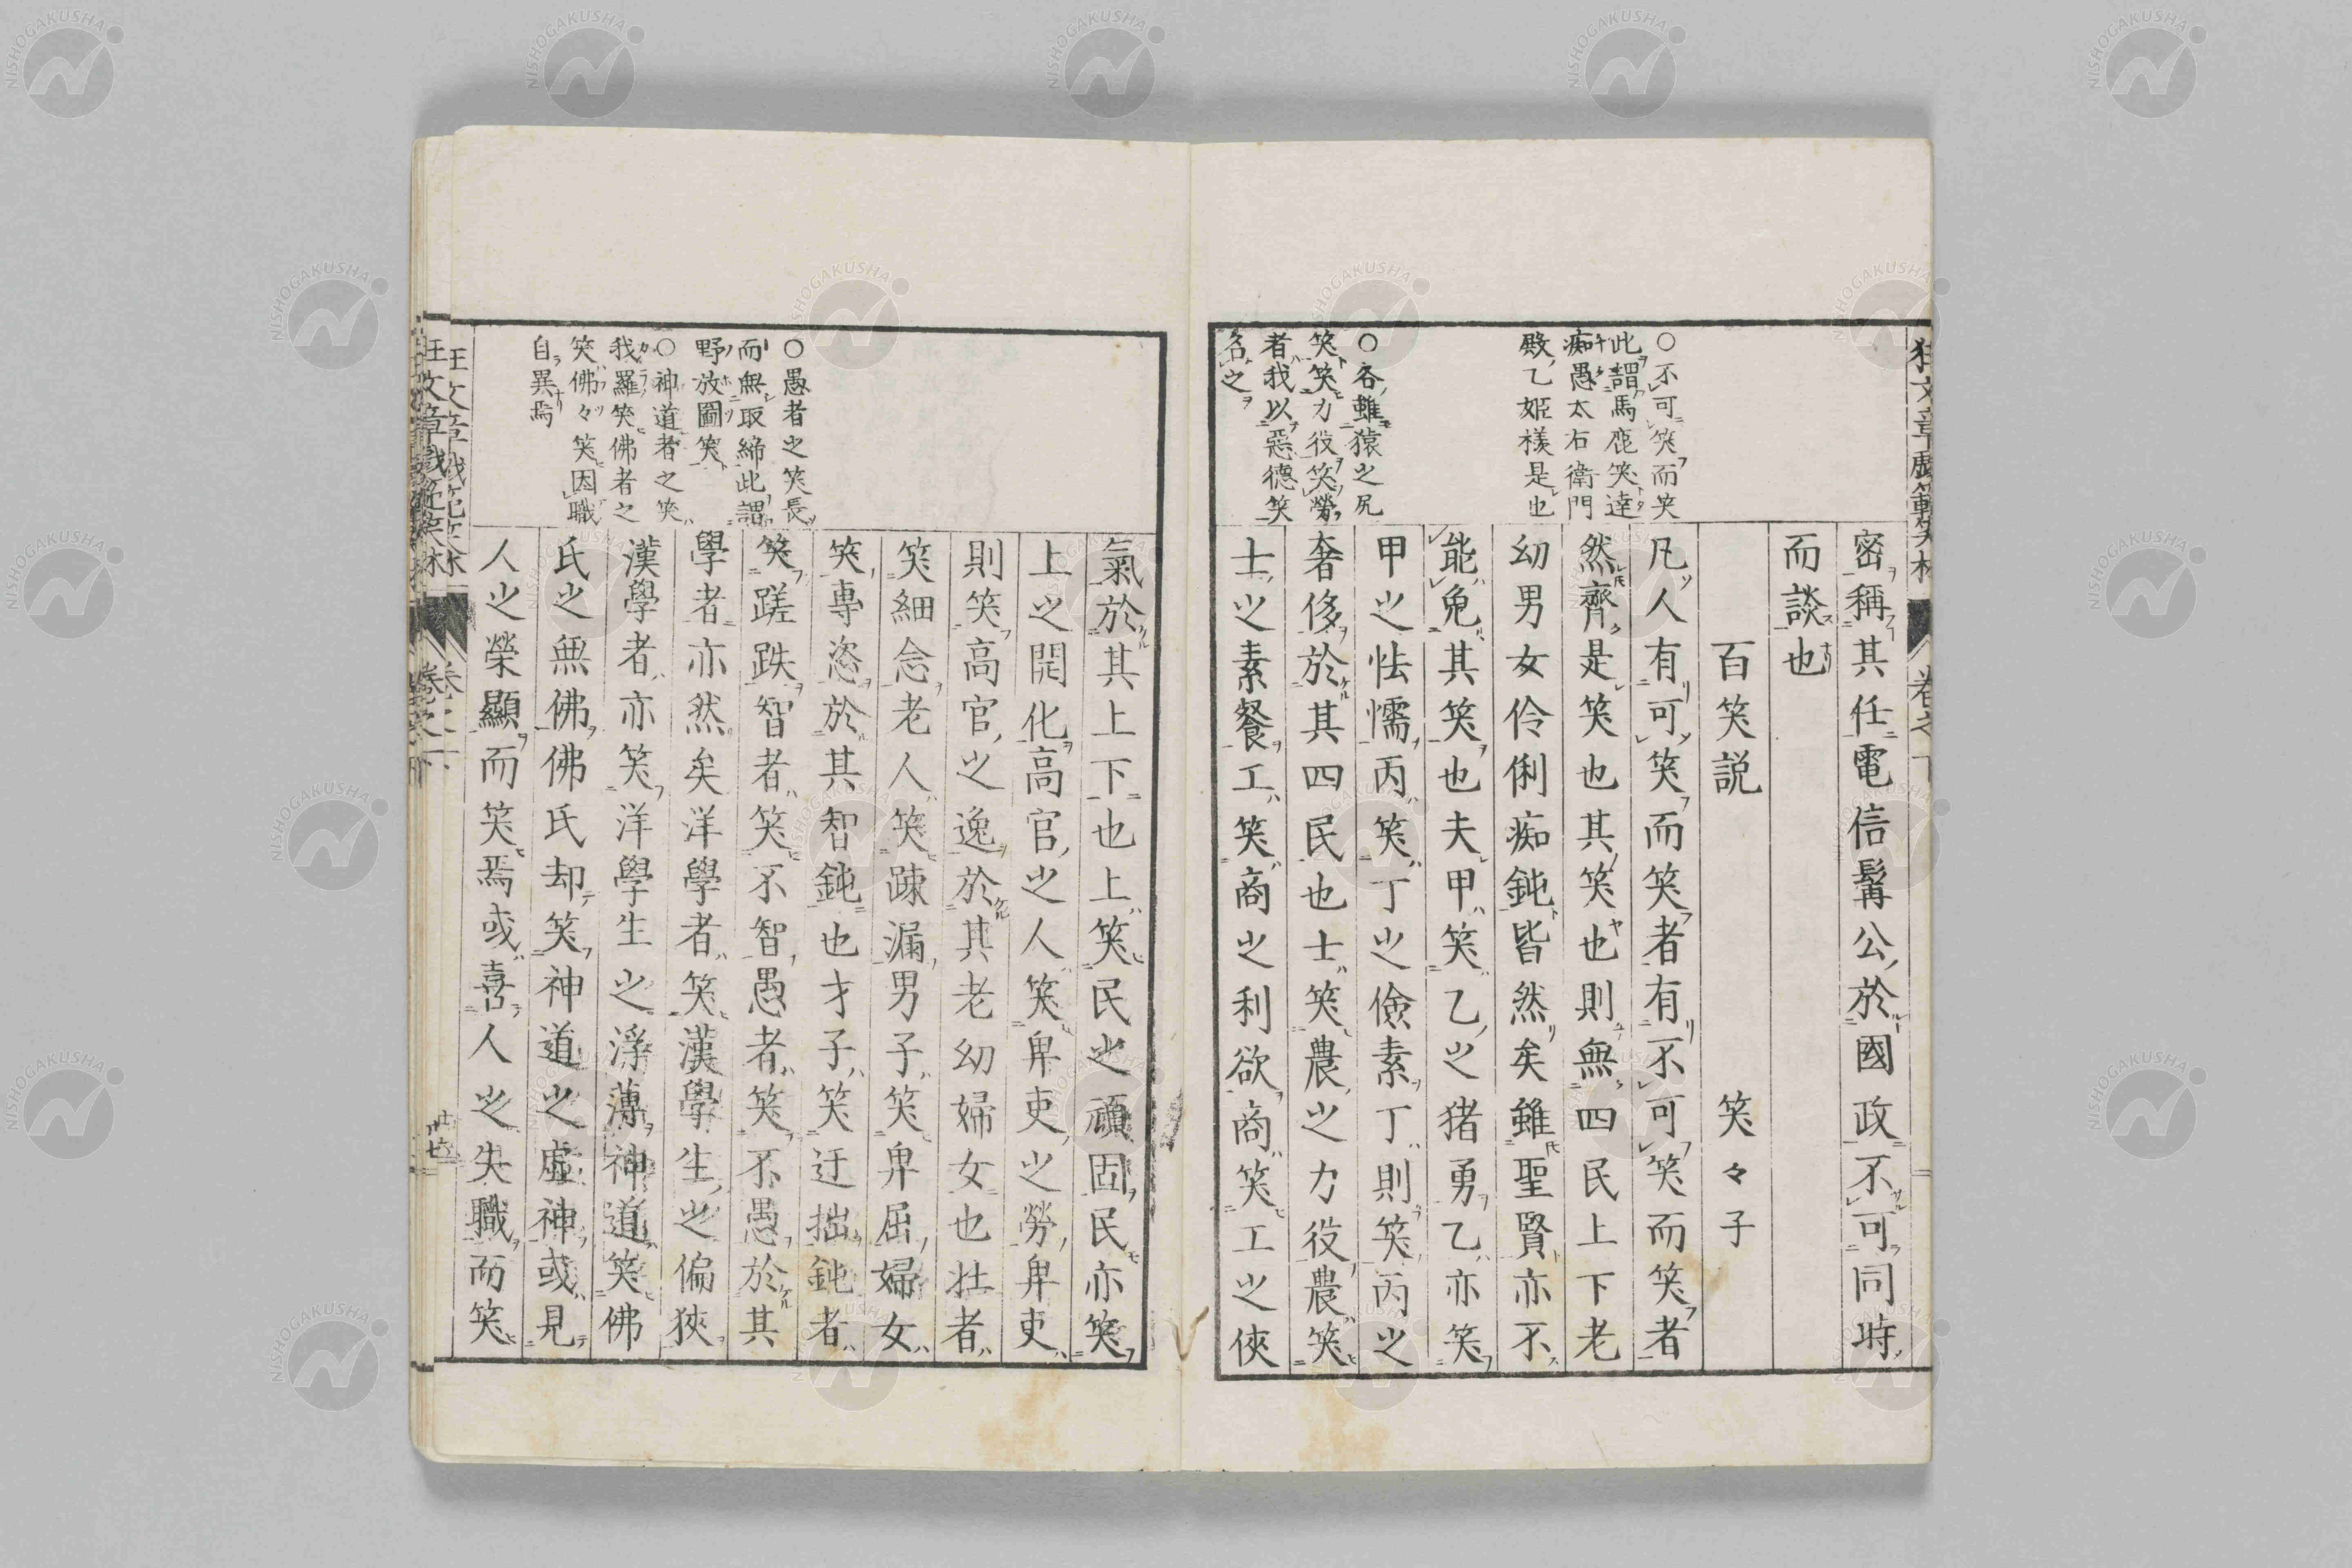 密稱其任電信髯公於國政不可同時
而談也
百笑説
笑々子
凡人有可笑而笑者有不可笑而笑者
然齊是笑也其笑也則無四民上下老
幼男女伶俐痴鈍皆然矣雖聖賢亦不
能免其笑也夫甲笑乙之猪勇乙亦笑
甲之怯懦丙笑丁之儉素丁則笑丙之
奢侈於其四民也士笑農之力役農笑
士之素餐工笑商之利欲商笑工之俠
○不可笑而笑
此謂馬鹿笑達
痴愚太右衛門
殿乙姬樣是也
○吝雖猿之尻
笑笑力役笑勞
者我以惡德笑
名之
氣於其上下也上笑民之頑固民亦笑
上之開化高官之人笑卑吏之勞卑吏
則笑高官之逸於其老幼婦女也壯者
笑細念老人笑踈漏男子笑卑屈婦女
笑專恣於其智鈍也才子笑迂拙鈍者
笑蹉跌智者笑不智愚者笑不愚於其
學者亦然矣洋學者笑漢學生之偏狹
漢學者亦笑洋學生之浮薄神道笑佛
氏之無佛佛氏却笑神道之虛神或見
人之榮顯而笑焉或喜人之失職而笑
○愚者之笑長
而無取締此謂
野放圖笑
○神道者之笑
我羅笑佛者之
笑佛々笑因職
自異焉
NISHOGAKUSHA